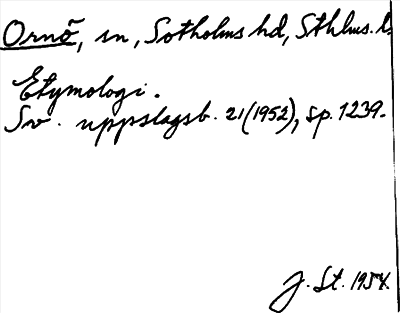 Ornö, sn, Sotholms hd, Sthlms. l.
Etymologi.
Sv. uppslagsb. 21 (1952), sp. 1239.
J. St. 1954.